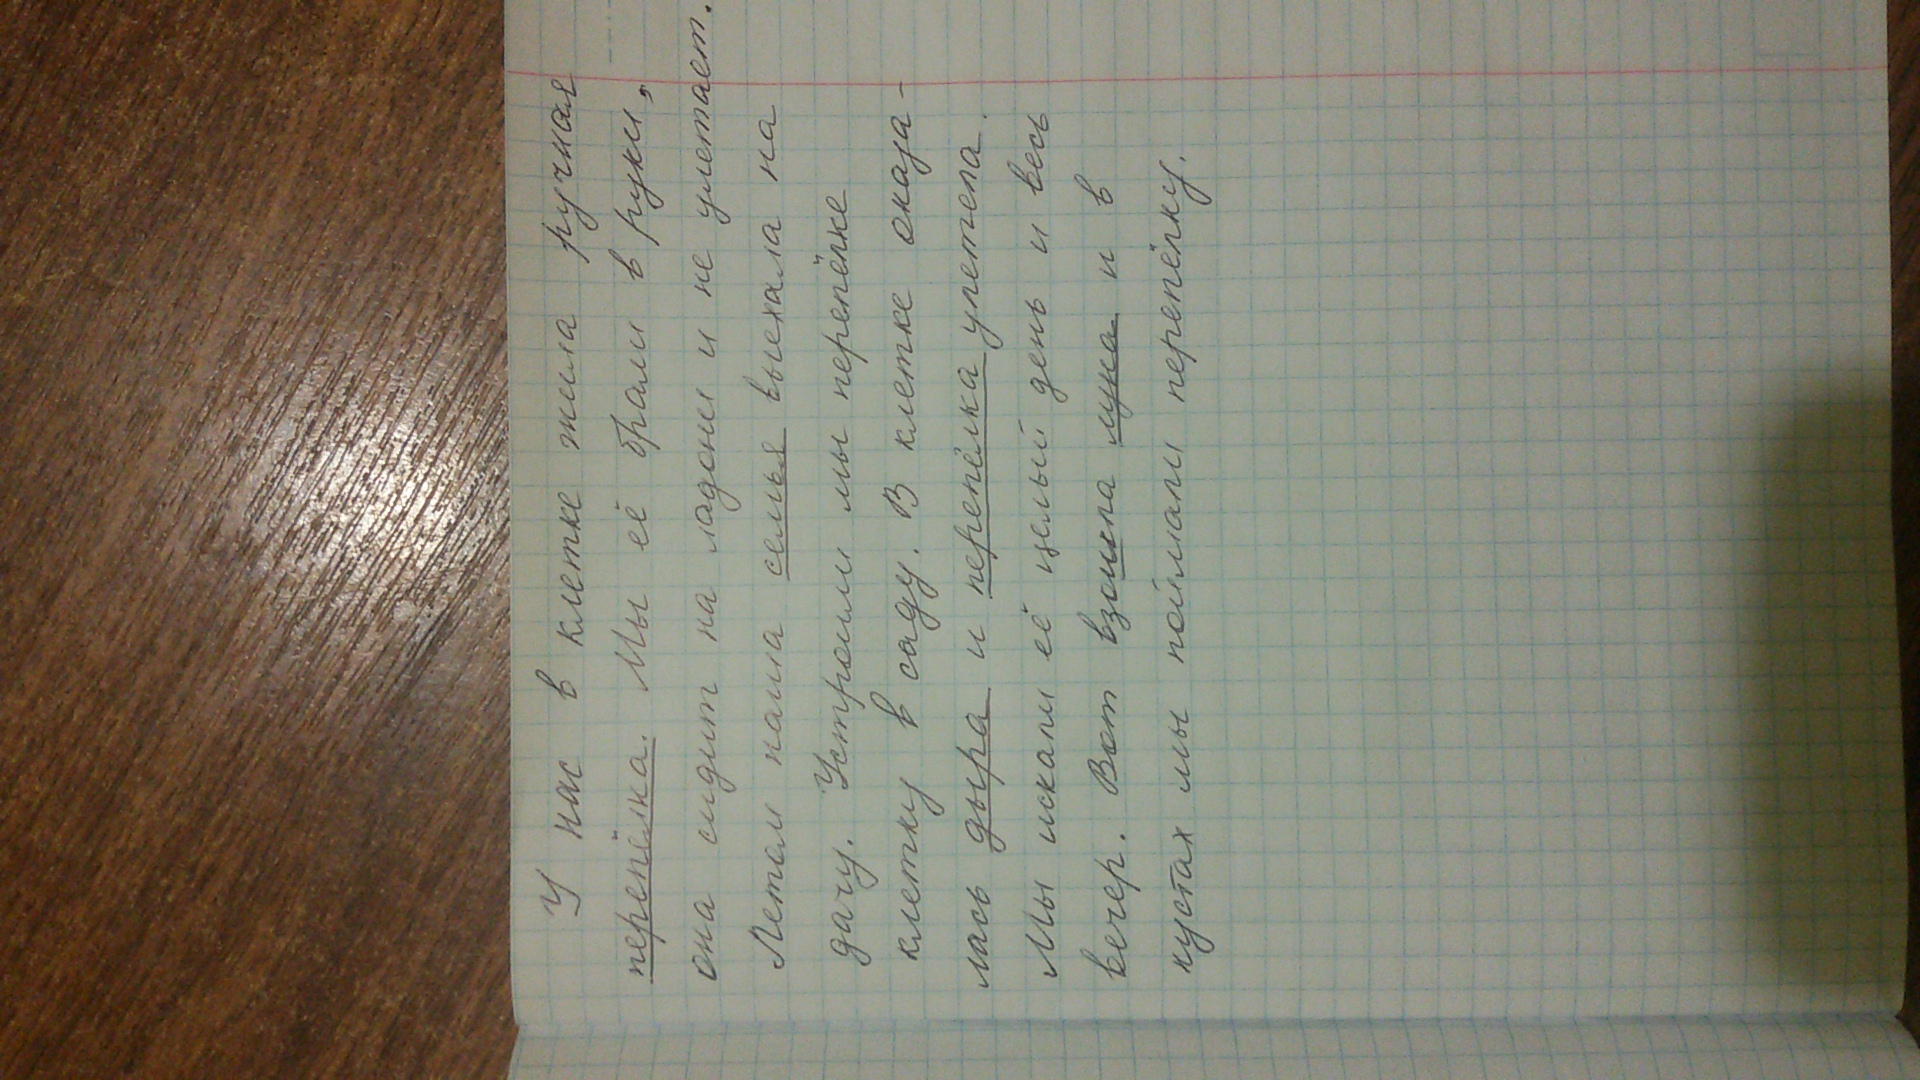 У нас в клетке жила ручная
перепёлка. Мы её брали в руки,
она сидит на ладони и не улетает.
Летом наша семья выехала на
дачу. Устроили мы перепёлке
клетку в саду. В клетке оказа-
лась дыра и перепёлка улетела.
Мы искали её целый день и весь
вечер. Вот взошла луна и в
кустах мы поймали перепёлку.